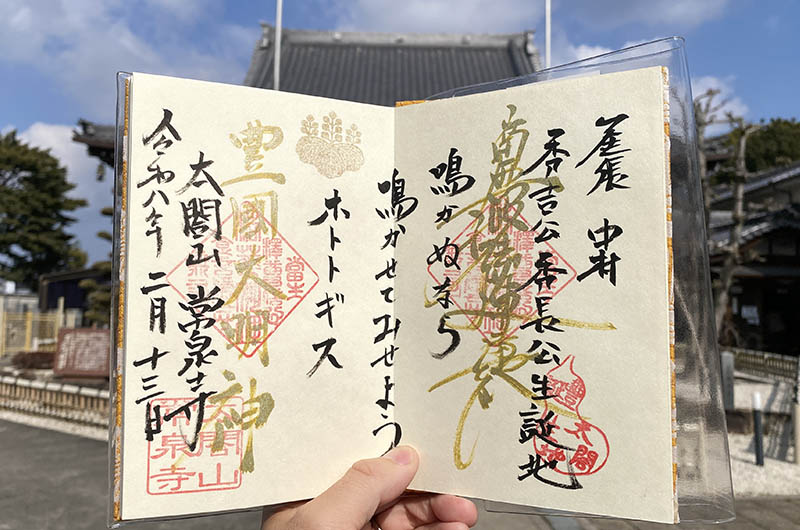 尾張 中村
秀吉公秀長公生誕地
南無妙法蓮華経
鳴かぬなら
鳴かせてみせよう
ホトトギス
豊國大明神
太閤山 常泉寺
令和八年 二月 十三日
太閤山
常泉寺